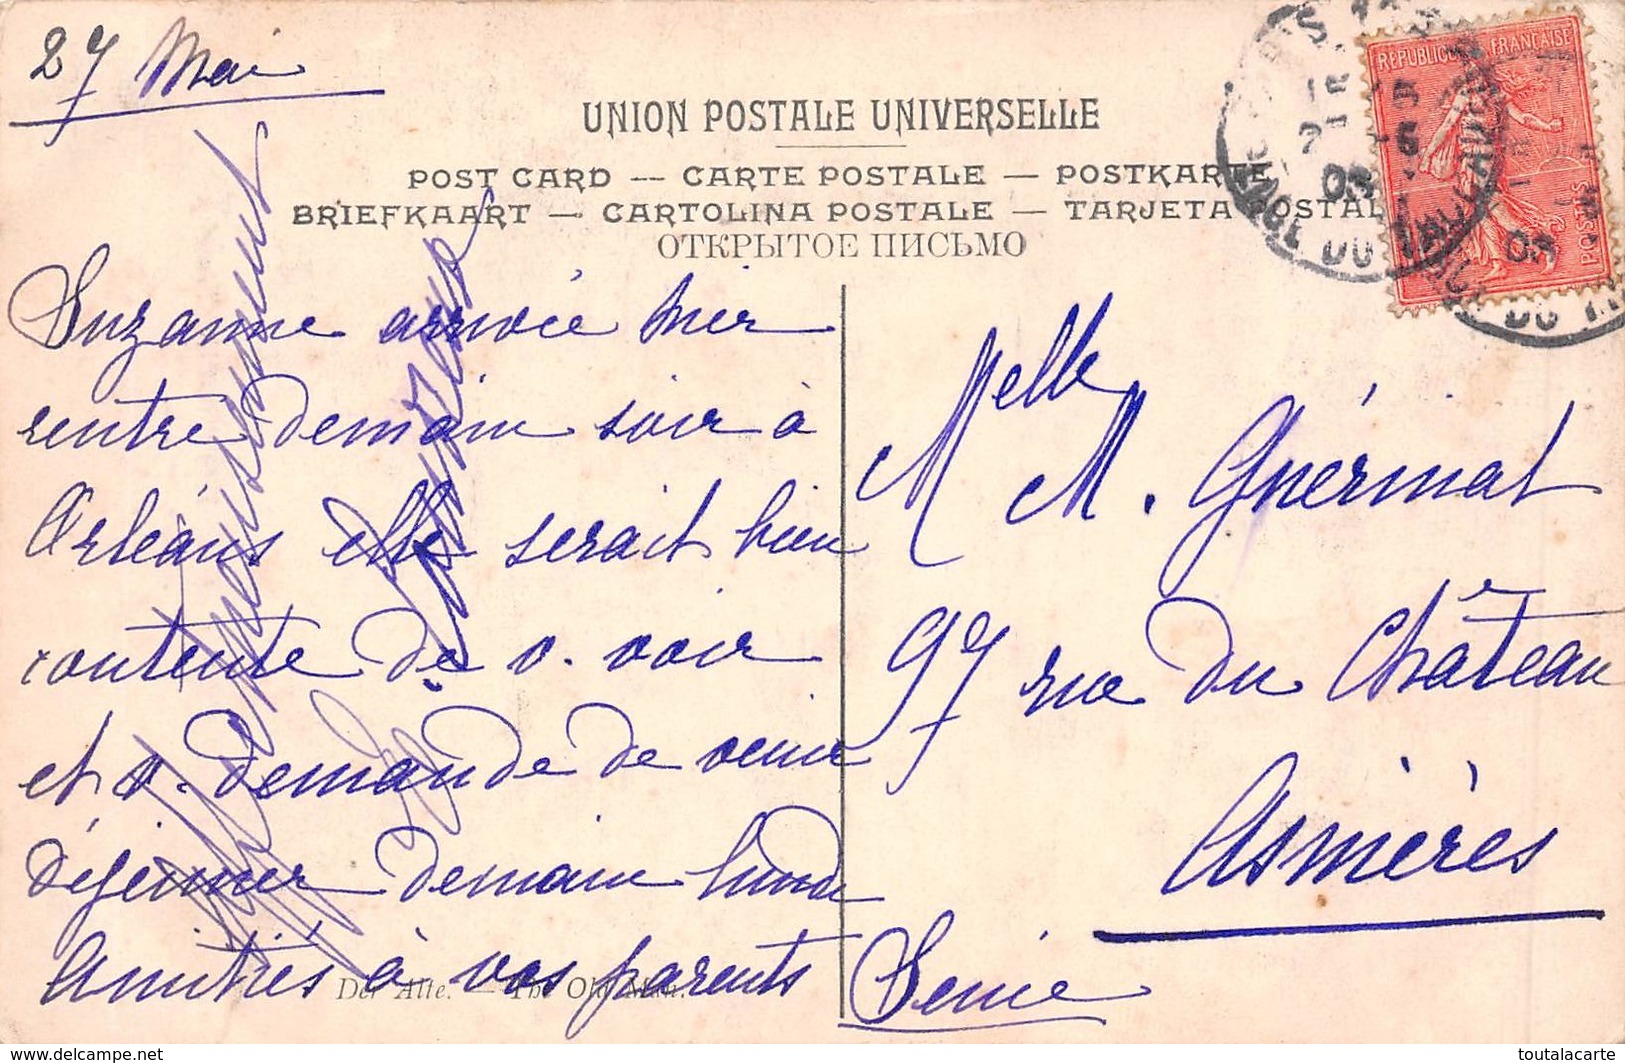 27 Mai
UNION POSTALE UNIVERSELLE
POST CARD — CARTE POSTALE — POSTKARTE
BRIEFKAART — CARTOLINA POSTALE — TARJETA POSTAL
ОТКРЫТОЕ ПИСЬМО
REPUBLIQUE FRANÇAISE
POSTES
Suzanne arrivée hier
rentre demain soir à
Orléans elle serait bien
contente de v. voir
et v. demande de venir
déjeuner demain lundi
Amitiés à vos parents
Melle
M. Guérinat
97 rue du Château
Asnières
Seine
Der Alte. — The Old Man.
https://www.delcampe.net
toutalacarte